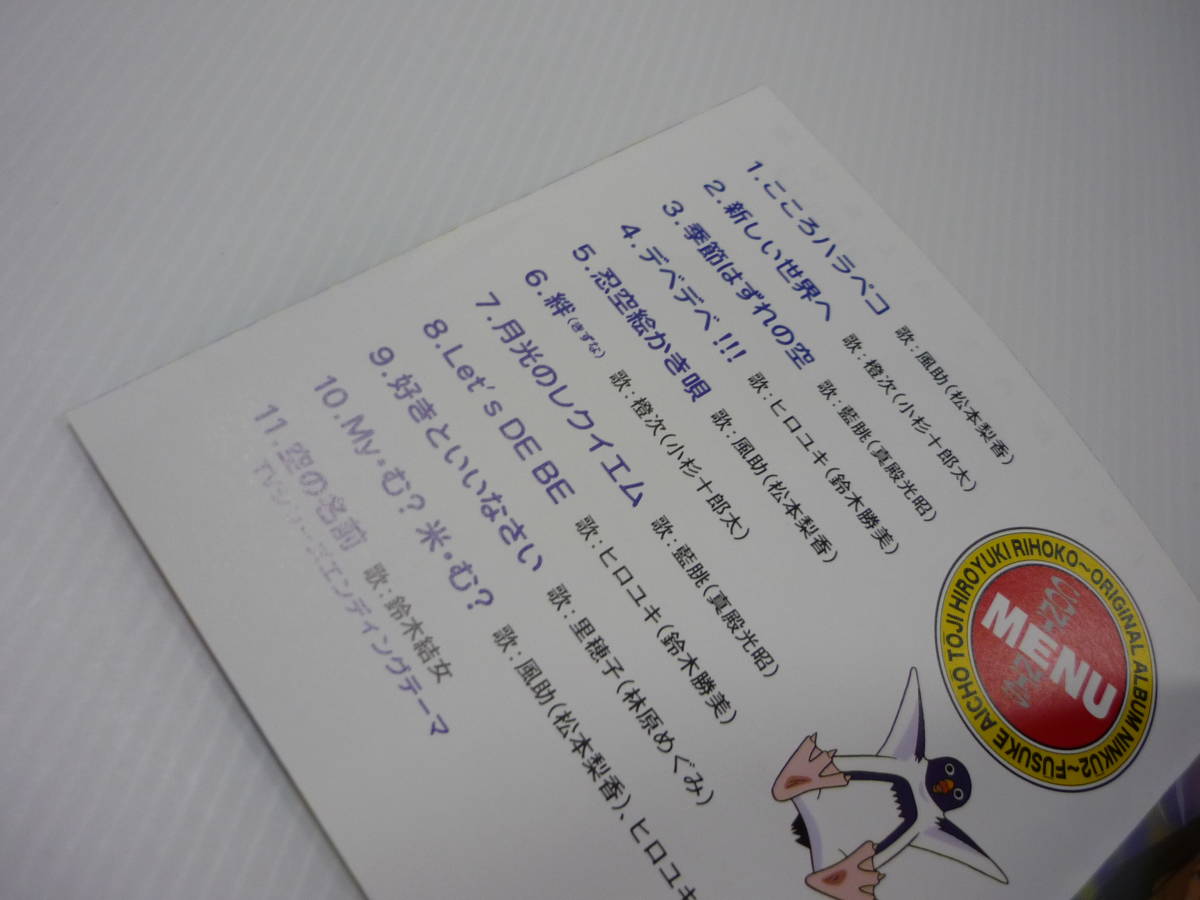 1.こころハラペコ 歌:風助(松本梨香)
2.新しい世界へ 歌:橙次(小杉十郎太)
3.季節はずれの空 歌:藍朓(真殿光昭)
4.デベデベ!!! 歌:ヒロユキ(鈴木勝美)
5.忍空絵かき唄 歌:風助(松本梨香)
6.絆(きずな) 歌:橙次(小杉十郎太)
7.月光のレクイエム 歌:藍朓(真殿光昭)
8.Let's DE BE 歌:ヒロユキ(鈴木勝美)
9.好きといいなさい 歌:里穂子(林原めぐみ)
10.My・む? 米・む? 歌:風助(松本梨香)、ヒロユキ
11.空の名前 歌:鈴木結女
TVシリーズエンディングテーマ
FUSUKE AICHO TOJI HIROYUKI RIHOKO~ORIGINAL ALBUM NINKU2~
MENU